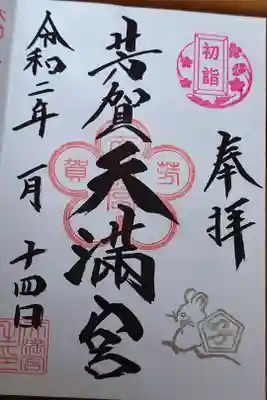 奉拝
初詣
子
芳賀天満宮
芳 賀
令和二年一月十四日